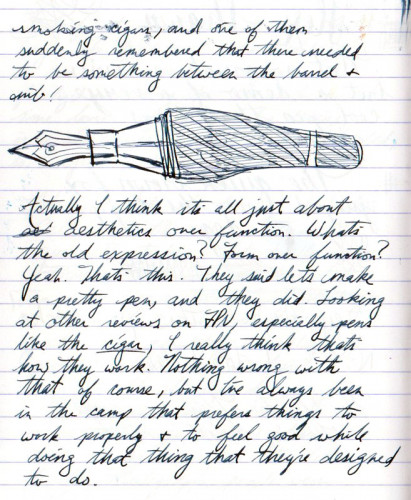 smoking cigars, and one of them
suddenly remembered that there needed
to be something between the barrel +
nib!
Actually I think its all just about
aesthetics over function. Whats
the old expression? Form over function?
Yeah. Thats this. They said lets make
a pretty pen, and they did. Looking
at other reviews on FPN, especially pens
like the cigar, I really think thats
how they work. Nothing wrong with
that of course, but I've always been
in the camp that prefers things to
work properly + to feel good while
doing that thing that they're designed
to do.